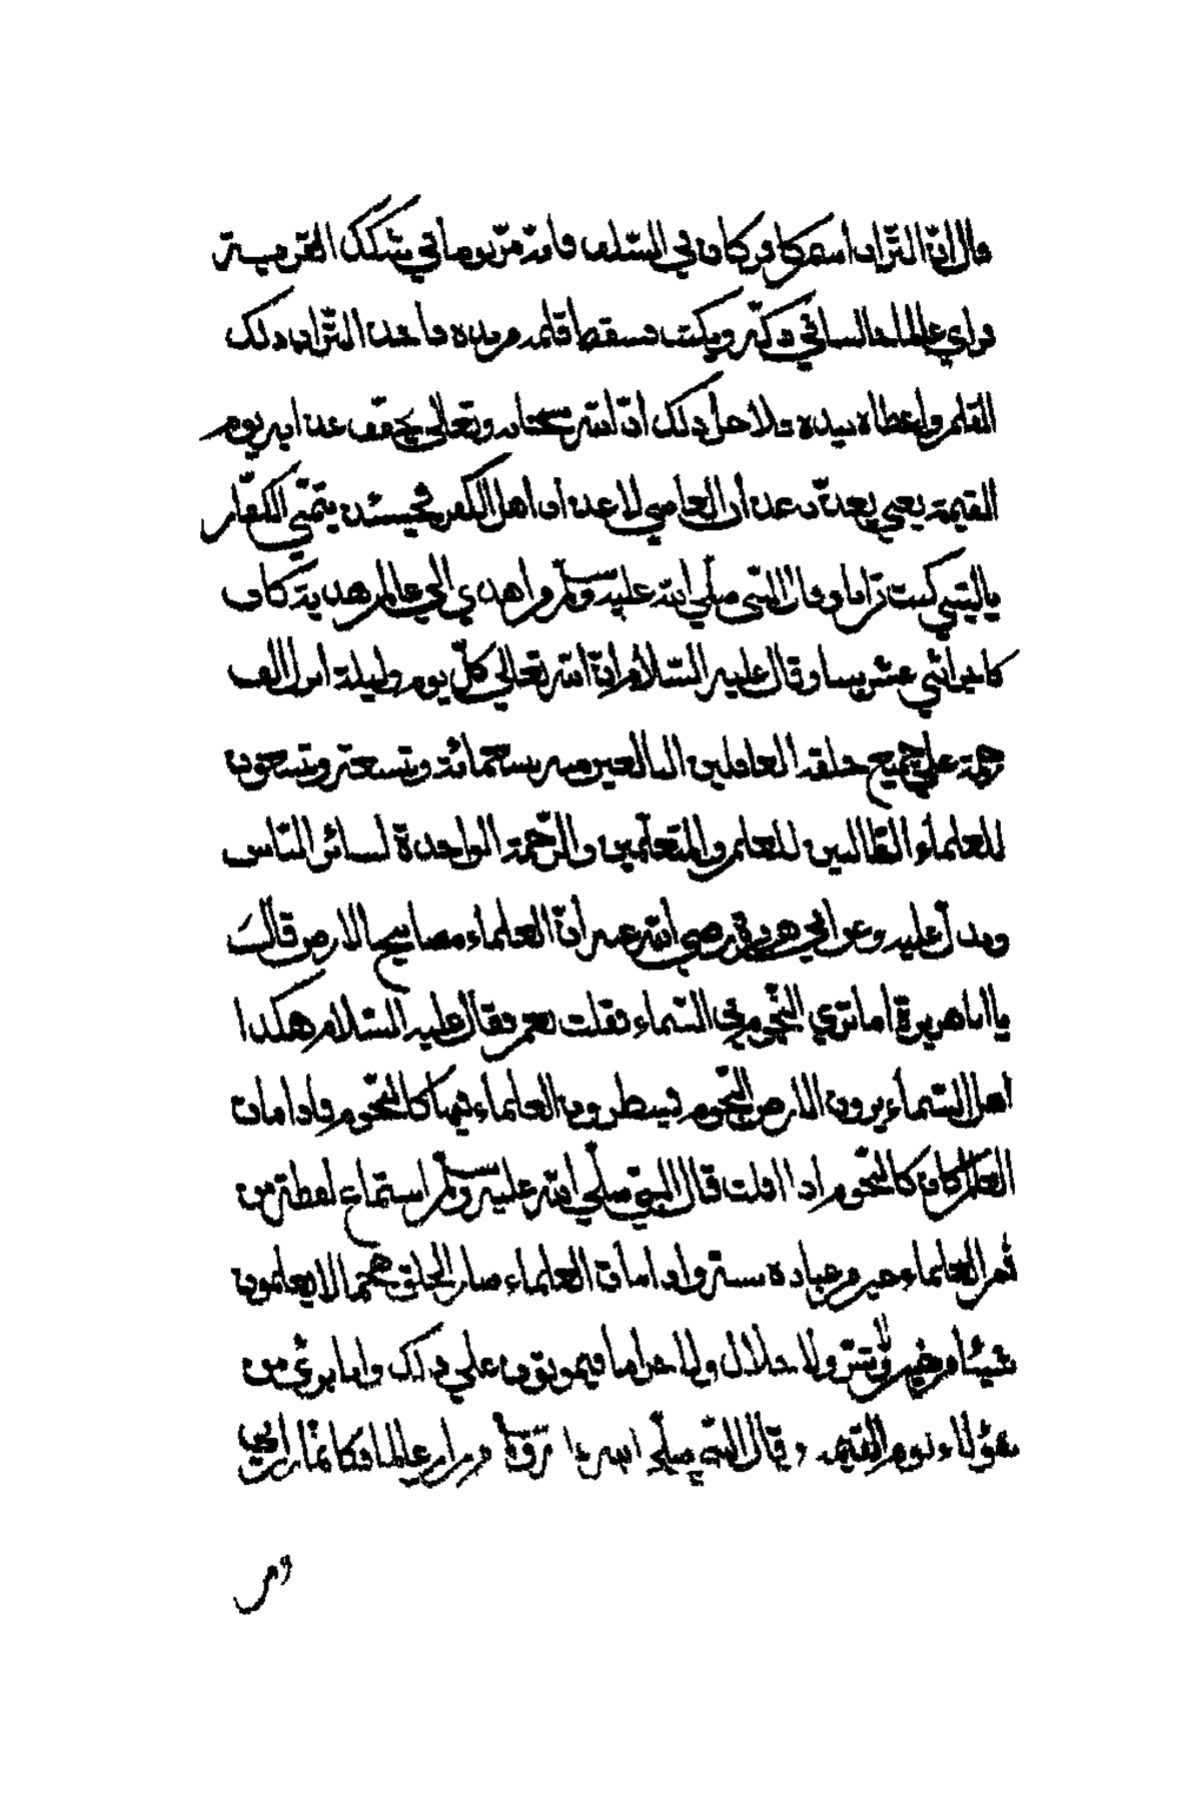 قال ان التراب اسم كافر كان في السلف فانه مر يوما في سكك القرية
فراي عالما جالسا في دكة ويكتب فسقط قلمه من يده فاخذ التراب ذلك
القلم واعطاه بيده فلاجل ذلك ان الله سبحانه وتعالى يخفف عذابه يوم
القيمة يعني يعذب عذاب العاصي لا عذاب اهل الكفر فحينئذ يتمنى الكفار
ياليتني كنت ترابا وقال النبي صلى الله عليه وسلم من اهدى الى عالم هدية كان
وقال عليه السلام ان الله تعالى كل يوم وليلة الف
رحمة على جميع خلقه الغافلين البالغين منه تسعمائة وتسعة وتسعون
للعلماء الطالبين للعلم والمتعلمين والرحمة الواحدة لسائر الناس
عليه وعن ابي هريرة رضي الله عنه ان العلماء مصابيح الارض قالت
يا ابا هريرة اما ترى النجوم في السماء فقلت نعم فقال عليه السلام هكذا
اهل السماء يرون الارض النجوم فينظرون العلماء فيها كالنجوم فاذا مات
العالم كان كالنجوم اذا افلت قال النبي صلى الله عليه وسلم استماع لفظة من
فم العلماء خير من عبادة سنة واذا مات العلماء صار الخلق همجا لا يعلمون
شيئا من خير ولا شر ولا حلال ولا حراما فيموتون على ذلك وانا بريء من
هؤلاء يوم القيمة وقال النبي صلى الله من زار عالما فكانما زارني
ومن